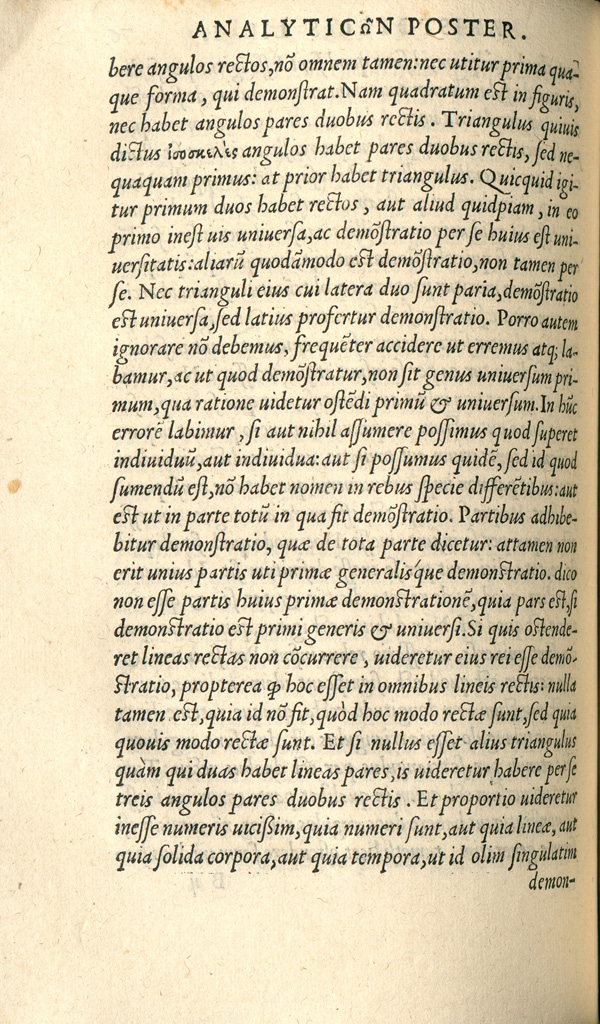 ANALYTICῶN POSTER.
bere angulos rectos, nõ omnem tamen: nec utitur prima qua-
que forma, qui demonstrat. Nam quadratum est in figuris,
nec habet angulos pares duobus rectis. Triangulus quiuis
dictus ἰσοσκελὲς angulos habet pares duobus rectis, sed ne-
quaquam primus: at prior habet triangulus. Quicquid igi-
tur primum duos habet rectos, aut aliud quidpiam, in eo
primo inest uis uniuersa, ac demõstratio per se huius est uni-
uersitatis: aliarũ quodãmodo est demõstratio, non tamen per
se. Nec trianguli eius cui latera duo sunt paria, demõstratio
est uniuersa, sed latius profertur demonstratio. Porro autem
ignorare nõ debemus, frequẽter accidere ut erremus atq; la-
bamur, ac ut quod demõstratur, non sit genus uniuersum pri-
mum, qua ratione uidetur ostẽdi primũ & uniuersum. In hũc
errorẽ labimur, si aut nihil assumere possimus quod superet
indiuiduũ, aut indiuidua: aut si possumus quidẽ, sed id quod
sumendũ est, nõ habet nomen in rebus specie differẽtibus: aut
est ut in parte totũ in qua fit demõstratio. Partibus adhibe-
bitur demonstratio, quæ de tota parte dicetur: attamen non
erit unius partis uti primæ generalisq́ue demonstratio. dico
non esse partis huius primæ demonstrationẽ, quia pars est, si
demonstratio est primi generis & uniuersi. Si quis ostende-
ret lineas rectas non cõcurrere, uideretur eius rei esse demõ-
stratio, propterea ꝙ hoc esset in omnibus lineis rectis: nulla
tamen est, quia id nõ fit, quòd hoc modo rectæ sunt, sed quia
quouis modo rectæ sunt. Et si nullus esset alius triangulus
quàm qui duas habet lineas pares, is uideretur habere per se
treis angulos pares duobus rectis. Et proportio uideretur
inesse numeris uicißim, quia numeri sunt, aut quia lineæ, aut
quia solida corpora, aut quia tempora, ut id olim singulatim
demon-